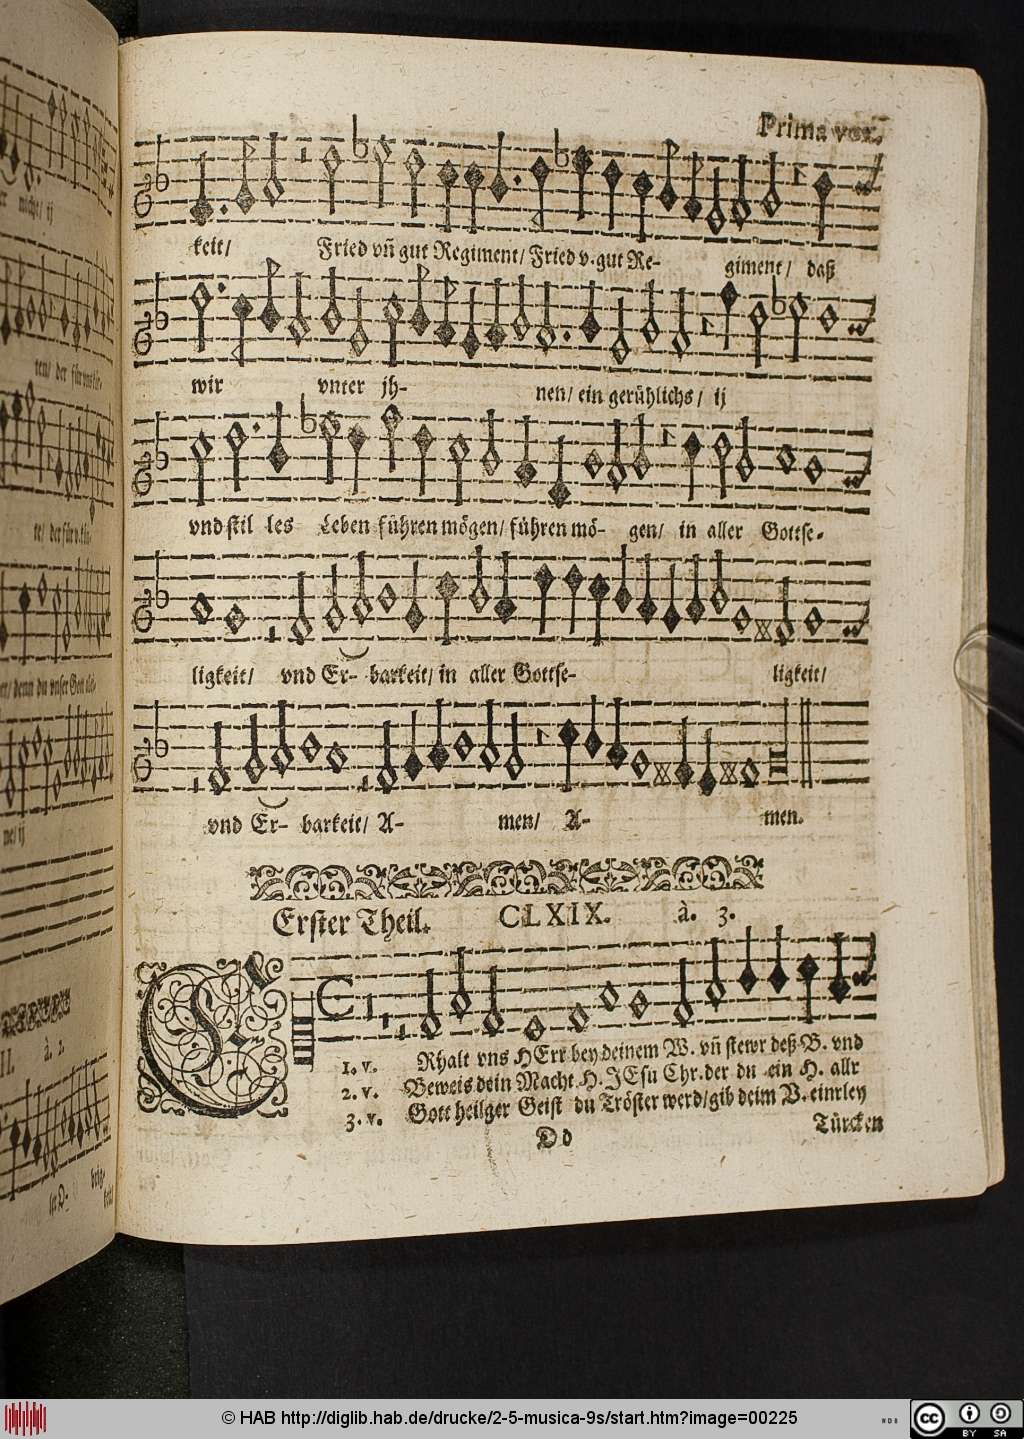 Prima vox.
keit/ Fried vñ gut Regiment/ Fried v. gut Re- giment/ daß
wir vnter jh- nen/ ein gerühlichs/ ij
vnd stil les Leben führen mögen/ führen mö- gen/ in aller Gottse-
ligkeit/ vnd Er- barkeit/ in aller Gottse- ligkeit/
vnd Er- barkeit/ A- men/ A- men.
Erster Theil. CLXIX. à. 3.
E
1. v. Rhalt vns HErr bey deinem W. vñ stewr deß B. vnd
2. v. Beweis dein Macht H. JEsu Chr. der du ein H. allr
3. v. Gott heilger Geist du Tröster werd/ gib deim V. einrley
Dd Türcken
© HAB http://diglib.hab.de/drucke/2-5-musica-9s/start.htm?image=00225
cc BY SA